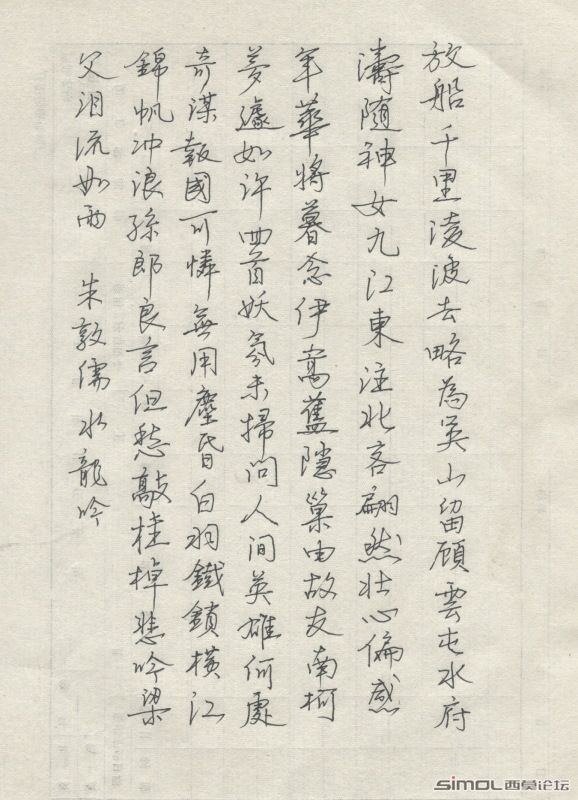 放船千里淩波去略為吳山留顧雲屯水府
濤隨神女九江東注北客翩然壯心偏感
年華將暮念伊嵩舊隱巢由故友南柯
夢遽如许回首妖氛未掃問人间英雄何處
奇谋報國可憐無用塵昏白羽鐵鎖橫江
錦帆冲浪孫郎良言但愁敲桂棹悲吟梁
父泪流如雨 朱敦儒水龍吟
SiMOL西莫论坛